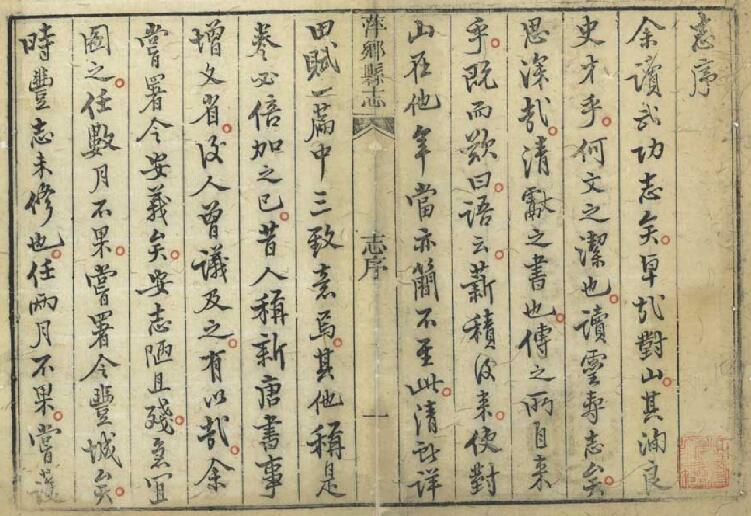 志序
余讀武功志矣卓哉對山其洵良
史才乎何文之潔也讀靈壽志矣
思深哉清獻之書也傳之所自来
乎既而歎曰語云薪積後来使對
山在他年當亦簡不至此清詳
萍鄉縣志 志序 一
田賦一篇中三致意焉其他稱是
卷必倍加之已昔人稱新唐書事
增文省後人曾議及之有以哉余
嘗署令安義矣安志陋且殘急宜
圖之任數月不果嘗署令豐城矣
時豐志未修也任兩月不果嘗護